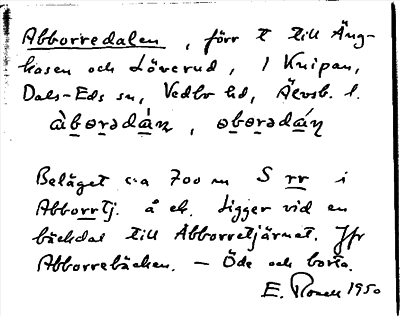 Abborredalen, förr t till Äng-
kasen och Löverud, i Knipan,
Dals-Eds sn, Vedbo hd, Älvsb. l.
àbɵrədá̱n, ɵbɵrədán
Beläget c:a 700 m S rr i
Abborrtj. å ek. Ligger vid en
bäckdal till Abborretjärnet. Jfr
Abborrebäcken. — Öde och borta.
E. 1950